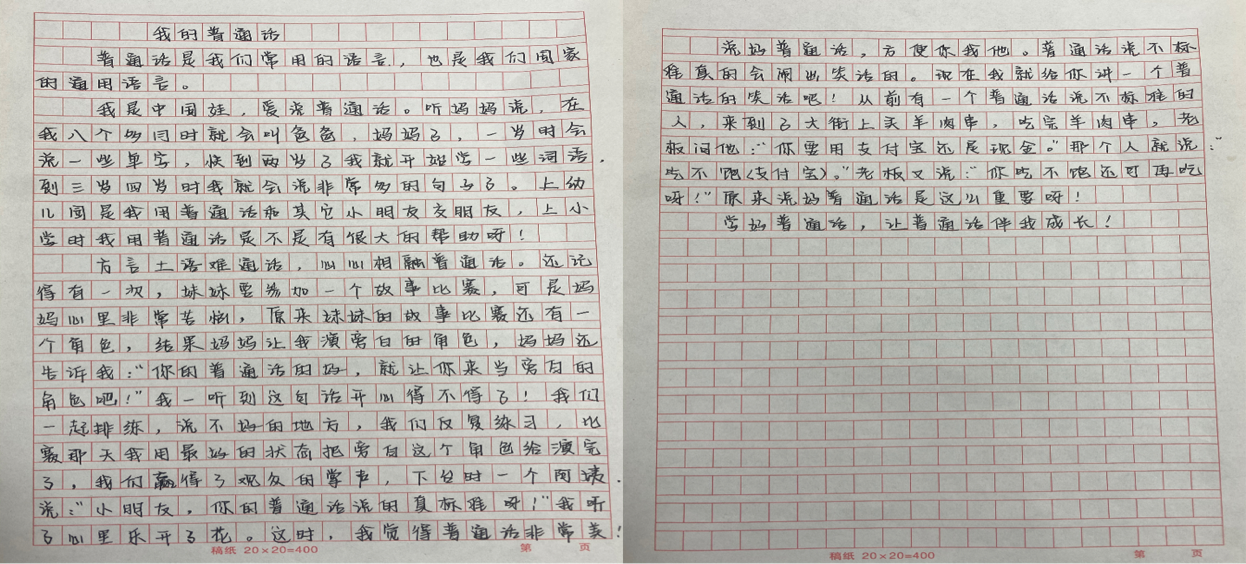 我的普通话
普通话是我们常用的语言，也是我们国家
的通用语言。
我是中国娃，爱说普通话。听妈妈说，在
我八个多月时就会叫爸爸，妈妈了，一岁时会
说一些单字，快到两岁了我就开始学一些词语，
到三岁四岁时我就会说非常多的句子了。上幼
儿园是我用普通话和其它小朋友交朋友，上小
学时我用普通话是不是有很大的帮助呀！
方言土语难通话，心心相融普通话。还记
得有一次，妹妹要参加一个故事比赛，可是妈
妈心里非常苦恼，原来妹妹的故事比赛还有一
个角色，结果妈妈让我演旁白的角色，妈妈还
告诉我：“你的普通话的好，就让你来当旁白的
角色吧！”我一听到这句话开心得不得了！我们
一起排练，说不好的地方，我们反复练习，比
赛那天我用最好的状态把旁白这个角色给演完
了，我们赢得了观众的掌声，下台时一个阿姨
说：“小朋友，你的普通话说的真标准呀！”我听
了心里乐开了花。这时，我觉得普通话非常美！
稿纸 20×20=400 第 页
说好普通话，方便你我他。普通话说不标
准真的会闹出笑话的。现在我就给你讲一个普
通话的笑话吧！从前有一个普通话说不标准的
人，来到了大街上买羊肉串，吃完羊肉串，老
板问他：“你要用支付宝还是现金。”那个人就说：“
吃不饱(支付宝)。”老板又说：“你吃不饱还可再吃
呀！”原来说好普通话是这么重要呀！
学好普通话，让普通话伴我成长！
稿纸 20×20=400 第 页